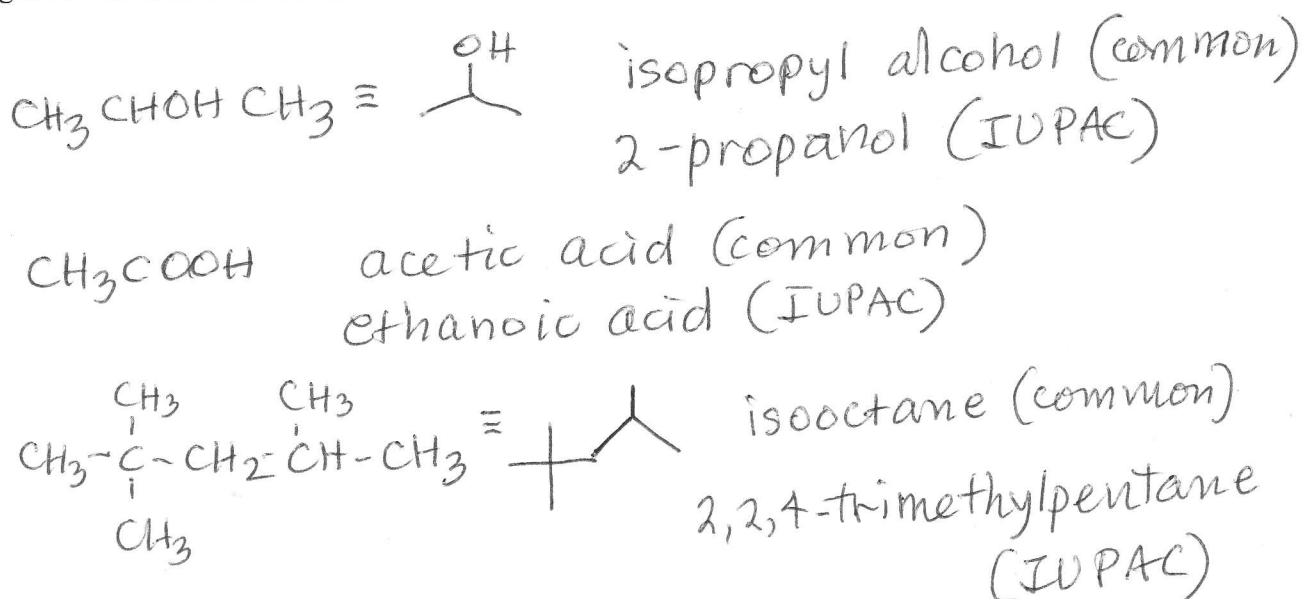 OH
CH3 CHOH CH3 ≡ isopropyl alcohol (common)
2-propanol (IUPAC)
CH3COOH acetic acid (common)
ethanoic acid (IUPAC)
CH3 CH3
CH3-C-CH2-CH-CH3 ≡ isooctane (common)
CH3
2,2,4-trimethylpentane
(IUPAC)